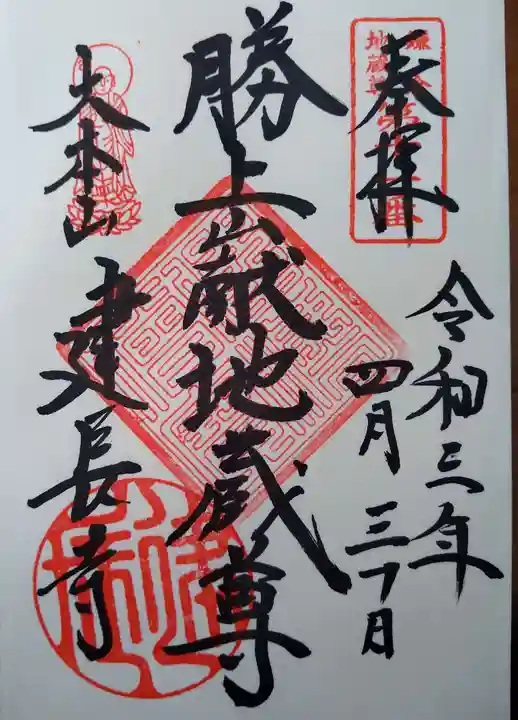 奉拝
令和三年
四月三十日
勝上献地蔵尊
大本山
建長寺